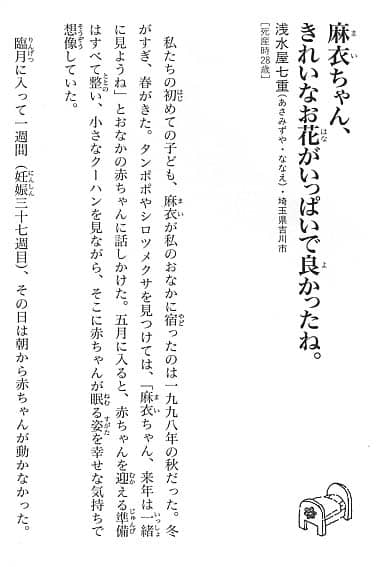 麻衣ちゃん、
きれいなお花がいっぱいで良かったね。
浅水屋七重(あさみずや・ななえ)・埼玉県吉川市
[死産時28歳]
私たちの初めての子ども、麻衣が私のおなかに宿ったのは一九九八年の秋だった。冬
がすぎ、春がきた。タンポポやシロツメクサを見つけては、「麻衣ちゃん、来年は一緒
に見ようね」とおなかの赤ちゃんに話しかけた。五月に入ると、赤ちゃんを迎える準備
はすべて整い、小さなクーハンを見ながら、そこに赤ちゃんが眠る姿を幸せな気持ちで
想像していた。
臨月に入って一週間(妊娠三十七週目)、その日は朝から赤ちゃんが動かなかった。